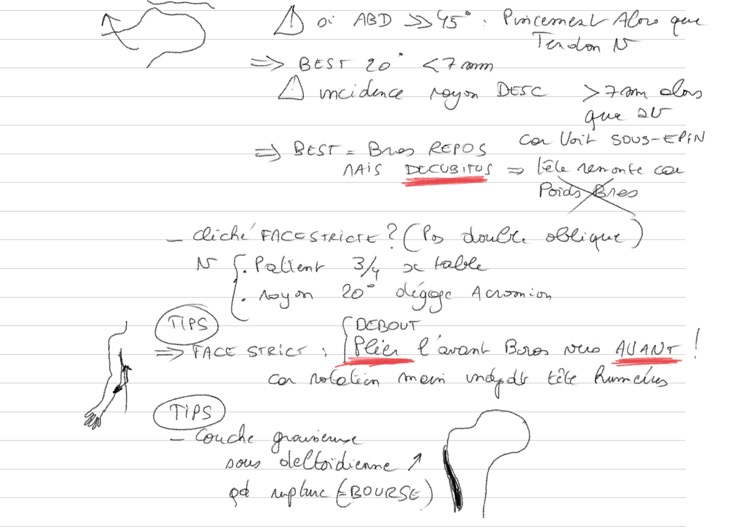 ⚠ si ABD >> 45° : Pincement Alors que
Tendon N
⇒ BEST 20° < 7mm
⚠ incidence rayon DESC > 7mm alors
que
⇒ BEST = Bras REPOS car Voit SOUS-EPIN
MAIS DECUBITUS ⇒ tête remonte car
Poids Bras
- cliché FACE STRICTE ? (Pas double oblique)
N { . Patient 3/4 table
. rayon 20° dégage Acromion
TIPS { DEBOUT
⇒ FACE STRICT : Plier l'avant Bras vers AVANT !
car rotation main indpdt tête humérus
TIPS
- Couche graisseuse
sous deltoïdienne ↗
qd rupture (= BOURSE)